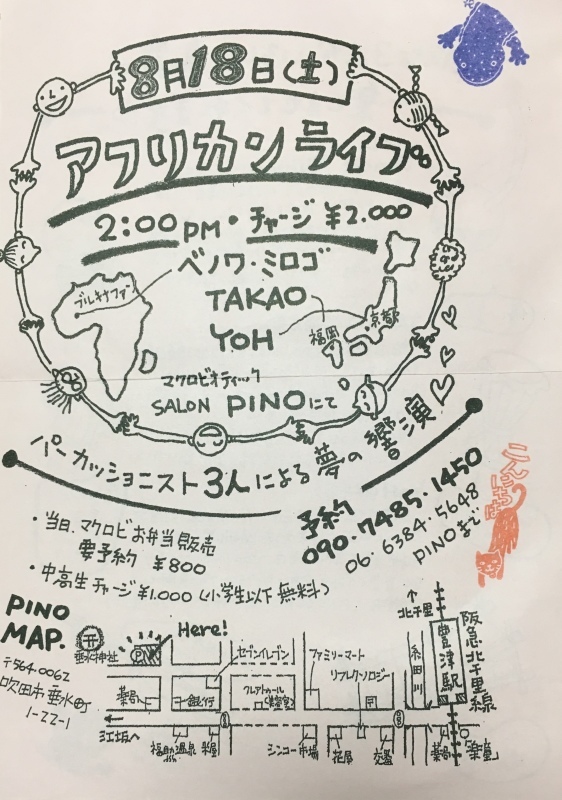 8月18日(土)
アフリカンライブ
2:00PM・チャージ ¥2.000
ベノワ・ミロゴ
ブルキナファソ
TAKAO
YOH
京都
福岡
マクロビオティック
SALON PINOにて
パーカッショニスト3人による夢の響演
予約
090.7485.1450
06.6384.5648
PINOまで
こんにちは
・当日、マクロビお弁当販売
要予約 ¥800
・中高生チャージ ¥1.000(小学生以下無料)
PINO
MAP.
〒564-0062
吹田市垂水町
1-22-1
垂水神社
PINO
Here!
セブンイレブン
ファミリーマート
リフレクソロジー
糸田川
北千里
豊津駅
阪急北千里線
薬局
銀行
江坂へ
福助温泉
米屋
シンコー市場
花屋
交番
薬局
「楽童」